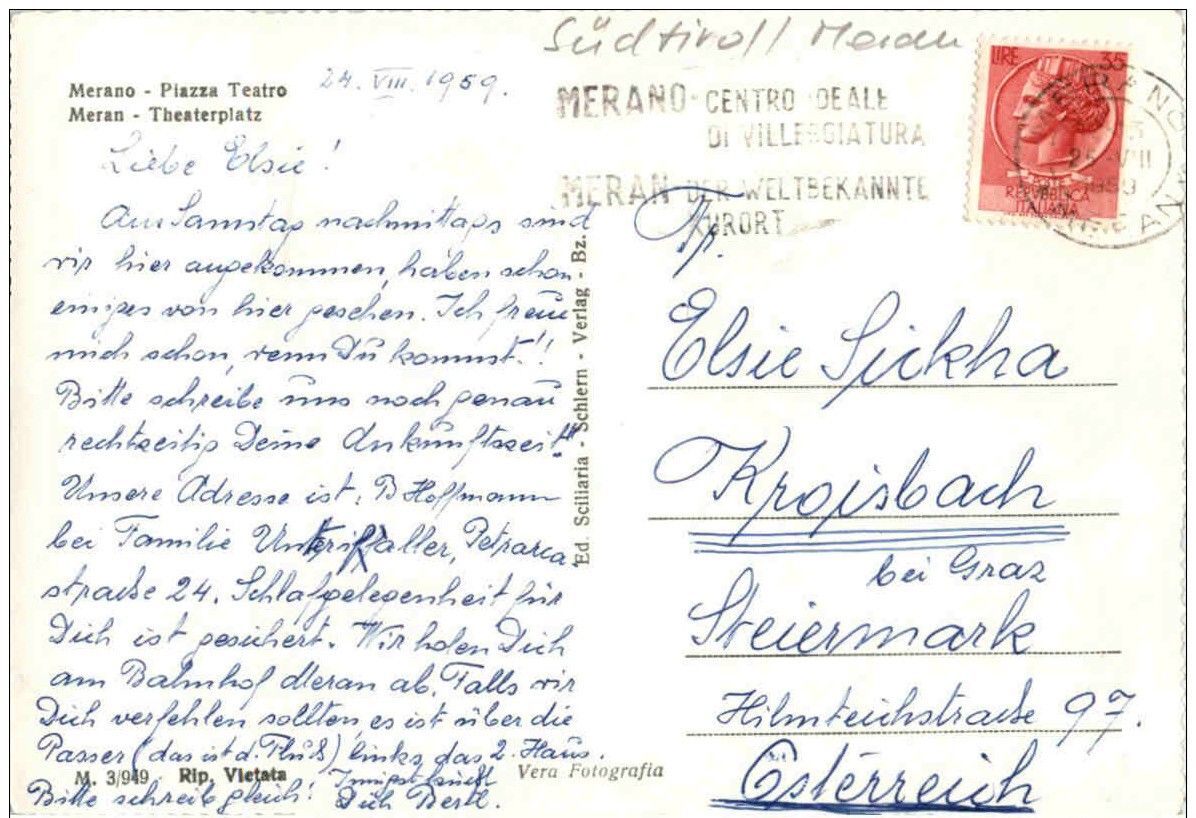 Südtirol / Meran
Merano - Piazza Teatro
Meran - Theaterplatz
24. VIII. 1959.
Liebe Elsie!
Am Samstag nachmittags sind
wir hier angekommen, haben schon
einiges von hier gesehen. Ich freue
mich schon, wenn Du kommst!!
Bitte schreibe uns noch genau
rechtzeitig Deine Ankunftszeit!
Unsere Adresse ist: B Hoffmann
bei Familie Unteriffaller, Petrarca-
straße 24. Schlafgelegenheit für
Dich ist gesichert. Wir holen Dich
am Bahnhof Meran ab. Falls wir
Dich verfehlen sollten, es ist über die
Passer (das ist d. Fluß) links das 2. Haus.
Bitte schreib gleich! Innigst küßt
Dich Bertl.
M. 3/949 Rip. Vietata
Vera Fotografia
Ed. Sciliaria - Schlern - Verlag - Bz.
MERANO - CENTRO IDEALE
DI VILLEGGIATURA
MERAN DER WELTBEKANNTE
KURORT
LIRE 35
POSTE
REPVBBLICA
ITALIANA
MERANO
25-VIII
1959
MERAN
Fr.
Elsie Sickha
Kroisbach
bei Graz
Steiermark
Hilmteichstraße 97.
Österreich